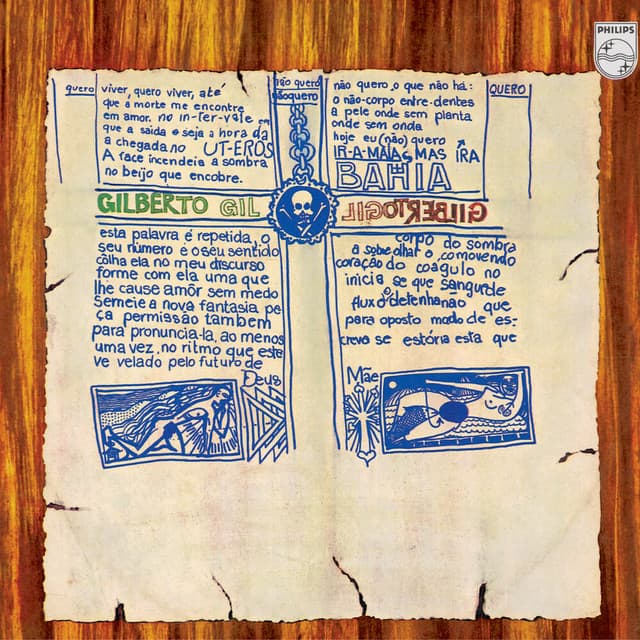 PHILIPS
quero
viver, quero viver, até
que a morte me encontre
em amor. no in-ter-vale em
que a saida e seja a hora da
a chegada no UT-EROS
A face incendeia a sombra
no beijo que encobre.
não quero
nãoquero
não quero o que não há:
o não-corpo entre-dentes
a pele onde sem planta
onde sem onda
hoje eu (não) quero
IR-A-MAIA S MAS IRA
BAHIA
QUERO
GILBERTO GIL
GILBERTO GIL
esta palavra é repetida, o
seu número é o seu sentido
côlha ela no meu discurso
forme com ela uma que
lhe cause amôr sem medo
Semeie a nova fantasia pe
ça permissão também
para pronuncia-la, ao menos
uma vez, no ritmo que este
ve velado pelo futuro de
Deus
corpo do sombra
a sobe olhar o comovendo
coração do coagulo no
inicia se que sangurde
fluxo detenhanão que
para oposto modo de es-
crevo se estória esta que
Mãe